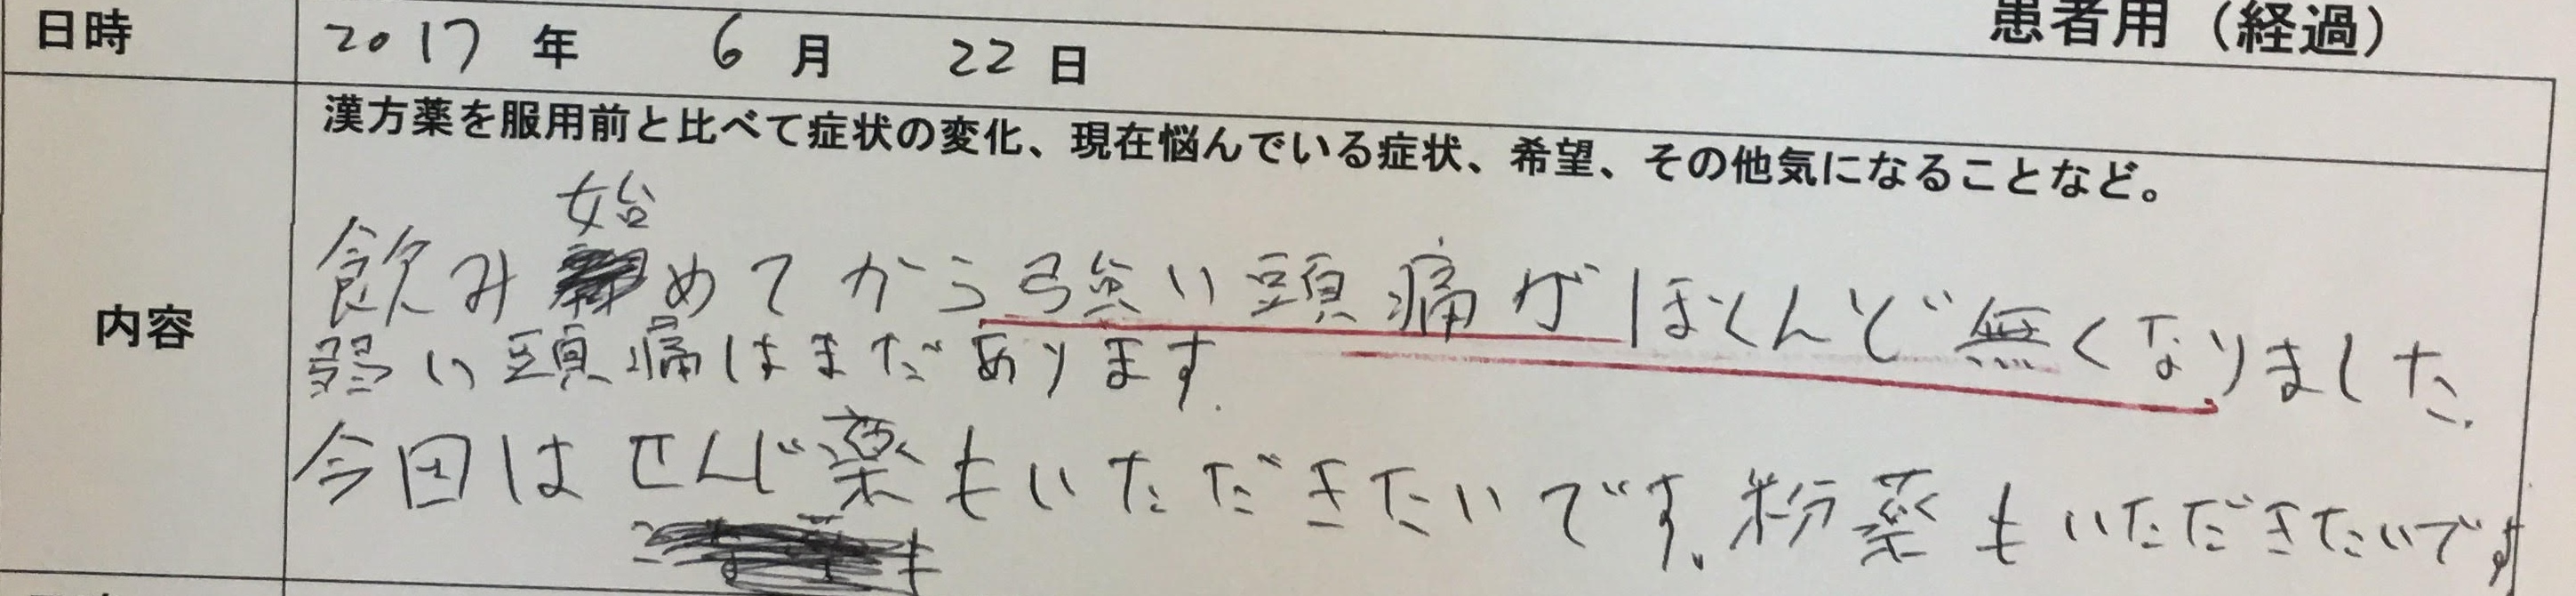 患者用（経過）
日時 2017年 6月 22日
漢方薬を服用前と比べて症状の変化、現在悩んでいる症状、希望、その他気になることなど。
内容
飲み始めてから強い頭痛がほとんど無くなりました.
弱い頭痛はまだあります.
今回はせんじ薬もいただきたいです.粉薬もいただきたいです